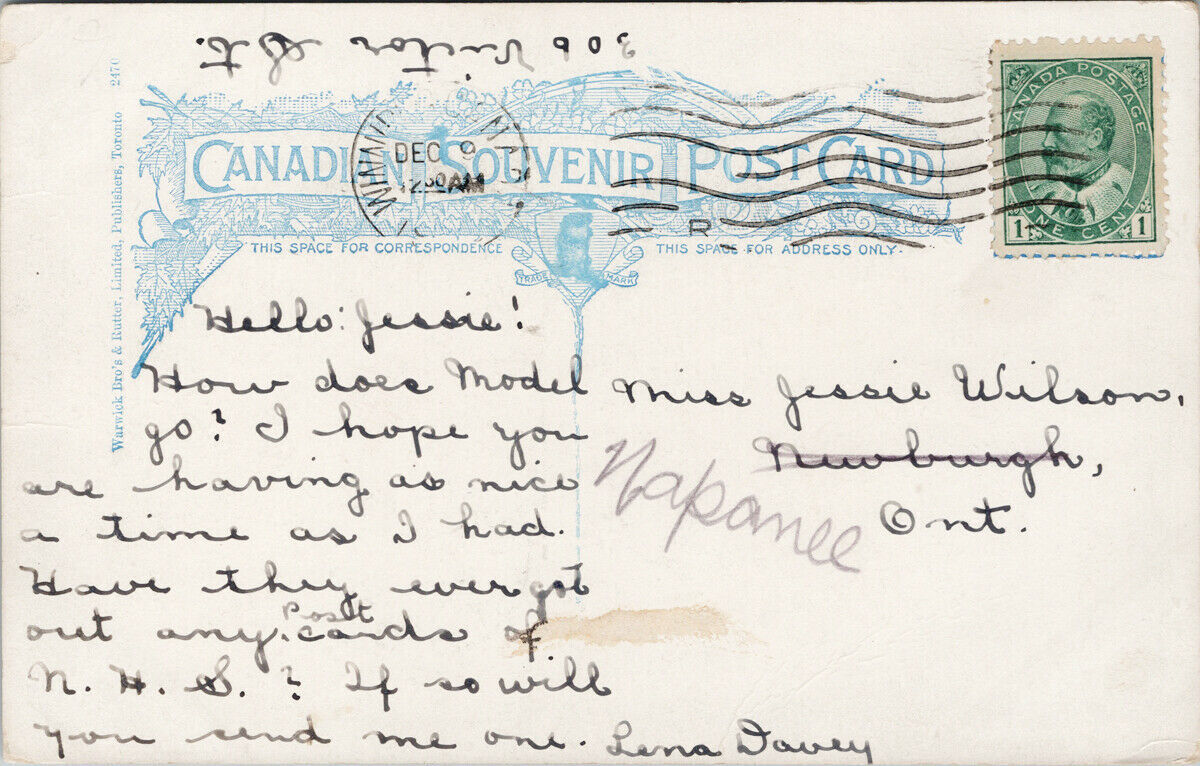 306 Victor St.
CANADIAN SOUVENIR POST CARD
DEC 9
12.30 AM
R
CANADA POSTAGE
ONE CENT
1 1
THIS SPACE FOR CORRESPONDENCE
THIS SPACE FOR ADDRESS ONLY.
TRADE MARK
Warwick Bro's & Rutter, Limited, Publishers, Toronto 2470
Hello Jessie!
How does Model
go? I hope you
are having as nice
a time as I had.
Have they ever got
out any Post cards of
N. H. S.? If so will
you send me one. Lena Davey
Miss Jessie Wilson,
Newburgh,
Napanee
Ont.